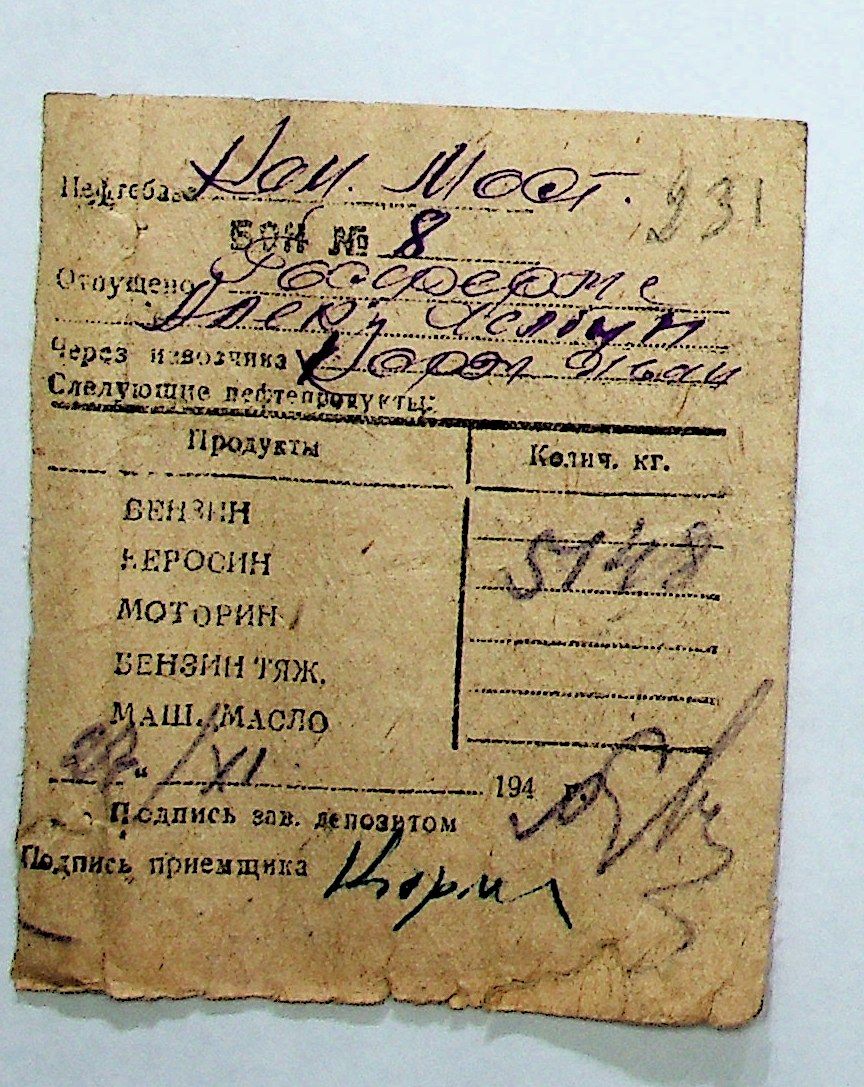 Нефтебаза Кам. Мост. 231
БОН № 8
Отпущено Госферме
Через извозчика
Следующие нефтепродукты:
Продукты Колич. кг.
БЕНЗИН
КЕРОСИН 5148
МОТОРИН
БЕНЗИН ТЯЖ.
МАШ. МАСЛО
27 " /XI 194 г.
Подпись зав. депозитом
Подпись приемщика